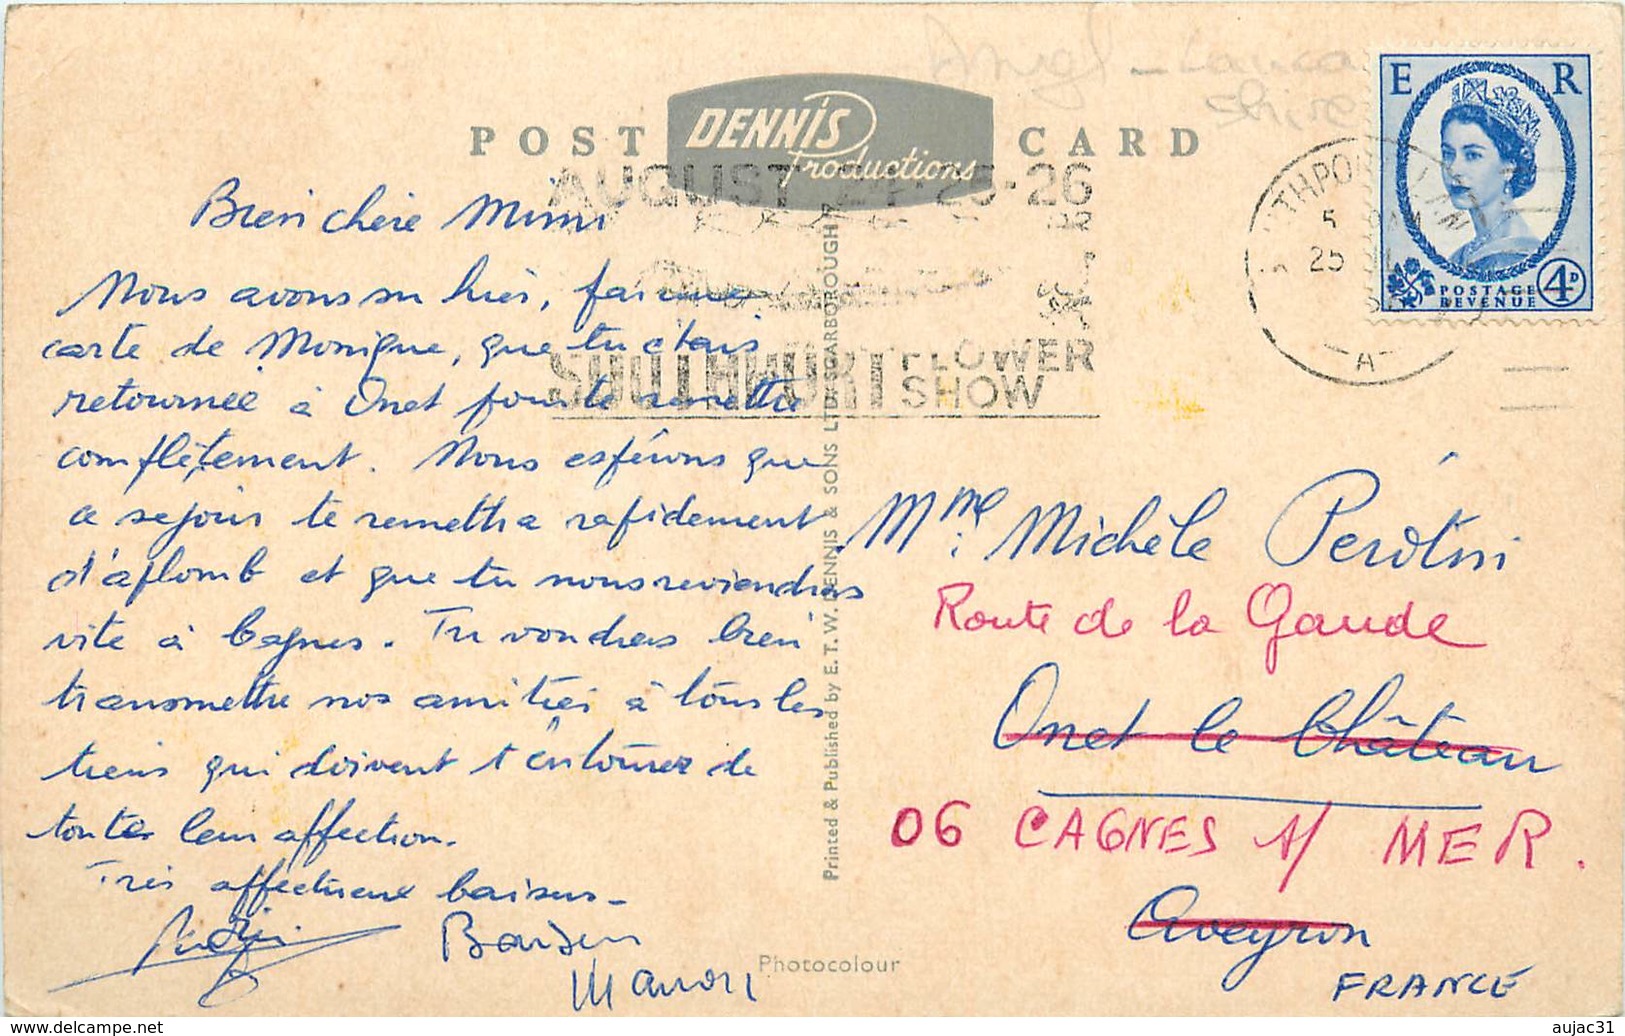 Angl - Lanca
shire
POST CARD
DENNIS
Productions
E R
POSTAGE
REVENUE
4D
AUGUST 24-25-26
SOUTHPORT FLOWER
SHOW
5
25
A
Bien chère Mimi
Nous avons su hier, par une
carte de Monique, que tu étais
retournée à Onet pour te remettre
complètement. Nous espérons que
ce séjour te remettra rapidement
d'aplomb et que tu nous reviendras
vite à Cagnes. Tu voudras bien
transmettre nos amitiés à tous les
tiens qui doivent t'entourer de
toute leur affection.
Très affectueux baisers_
Baisers
Manon
Printed & Published by E. T. W. DENNIS & SONS LTD. SCARBOROUGH
Photocolour
Mme Michèle Perotini
Route de la Gaude
Onet le Château
06 CAGNES s/ MER.
Aveyron
FRANCE
delcampe.net
aujac31